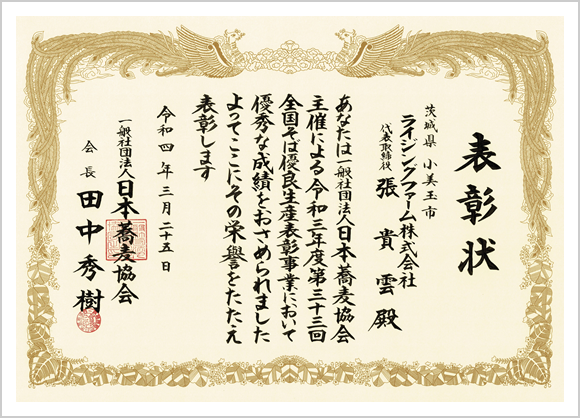 表彰状
茨城県 小美玉市
ライジングファーム株式会社
代表取締役 張貴雲殿
あなたは一般社団法人日本蕎麦協会
主催による令和三年度第三十三回
全国そば優良生産表彰事業において
優秀な成績をおさめられました
よってここにその栄誉をたたえ
表彰します
令和四年三月二十五日
一般社団法人日本蕎麦協会
会長 田中秀樹